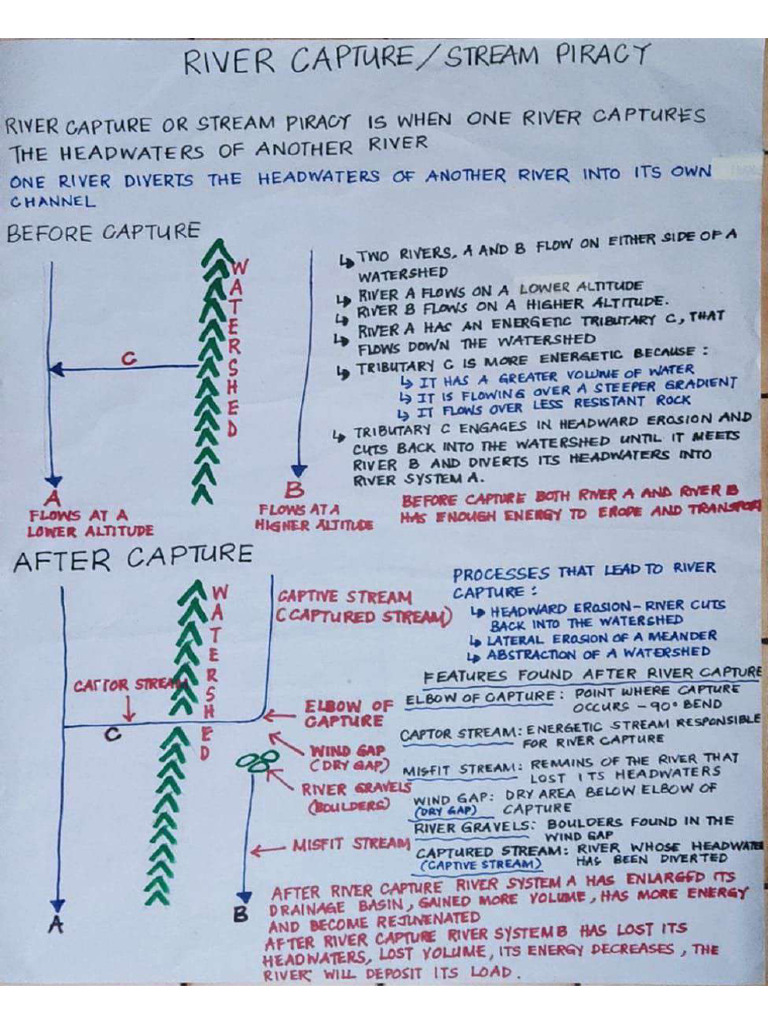 RIVER CAPTURE/STREAM PIRACY
RIVER CAPTURE OR STREAM PIRACY IS WHEN ONE RIVER CAPTURES
THE HEADWATERS OF ANOTHER RIVER
ONE RIVER DIVERTS THE HEADWATERS OF ANOTHER RIVER INTO ITS OWN
CHANNEL
BEFORE CAPTURE
WATERSHED
C
A
FLOWS AT A
LOWER ALTITUDE
B
FLOWS AT A
HIGHER ALTITUDE
↳ TWO RIVERS, A AND B FLOW ON EITHER SIDE OF A
WATERSHED
↳ RIVER A FLOWS ON A LOWER ALTITUDE
↳ RIVER B FLOWS ON A HIGHER ALTITUDE.
↳ RIVER A HAS AN ENERGETIC TRIBUTARY C, THAT
↳ FLOWS DOWN THE WATERSHED
↳ TRIBUTARY C IS MORE ENERGETIC BECAUSE :
↳ IT HAS A GREATER VOLUME OF WATER
↳ IT IS FLOWING OVER A STEEPER GRADIENT
↳ IT FLOWS OVER LESS RESISTANT ROCK
↳ TRIBUTARY C ENGAGES IN HEADWARD EROSION AND
CUTS BACK INTO THE WATERSHED UNTIL IT MEETS
RIVER B AND DIVERTS ITS HEADWATERS INTO
RIVER SYSTEM A.
BEFORE CAPTURE BOTH RIVER A AND RIVER B
HAS ENOUGH ENERGY TO ERODE AND TRANSPORT
AFTER CAPTURE
WATERSHED
CAPTIVE STREAM
(CAPTURED STREAM)
CAPTOR STREAM
C
ELBOW OF
CAPTURE
WIND GAP
(DRY GAP)
RIVER GRAVELS
(BOULDERS)
MISFIT STREAM
A
B
PROCESSES THAT LEAD TO RIVER
CAPTURE :
↳ HEADWARD EROSION - RIVER CUTS
BACK INTO THE WATERSHED
↳ LATERAL EROSION OF A MEANDER
↳ ABSTRACTION OF A WATERSHED
FEATURES FOUND AFTER RIVER CAPTURE
ELBOW OF CAPTURE : POINT WHERE CAPTURE
OCCURS - 90° BEND
CAPTOR STREAM: ENERGETIC STREAM RESPONSIBLE
FOR RIVER CAPTURE
MISFIT STREAM: REMAINS OF THE RIVER THAT
LOST ITS HEADWATERS
WIND GAP: DRY AREA BELOW ELBOW OF
(DRY GAP) CAPTURE
RIVER GRAVELS: BOULDERS FOUND IN THE
WIND GAP
CAPTURED STREAM: RIVER WHOSE HEADWATE
(CAPTIVE STREAM) HAS BEEN DIVERTED
AFTER RIVER CAPTURE RIVER SYSTEM A HAS ENLARGED ITS
DRAINAGE BASIN, GAINED MORE VOLUME, HAS MORE ENERGY
AND BECOME REJUNENATED
AFTER RIVER CAPTURE RIVER SYSTEM B HAS LOST ITS
HEADWATERS, LOST VOLUME, ITS ENERGY DECREASES, THE
RIVER WILL DEPOSIT ITS LOAD.